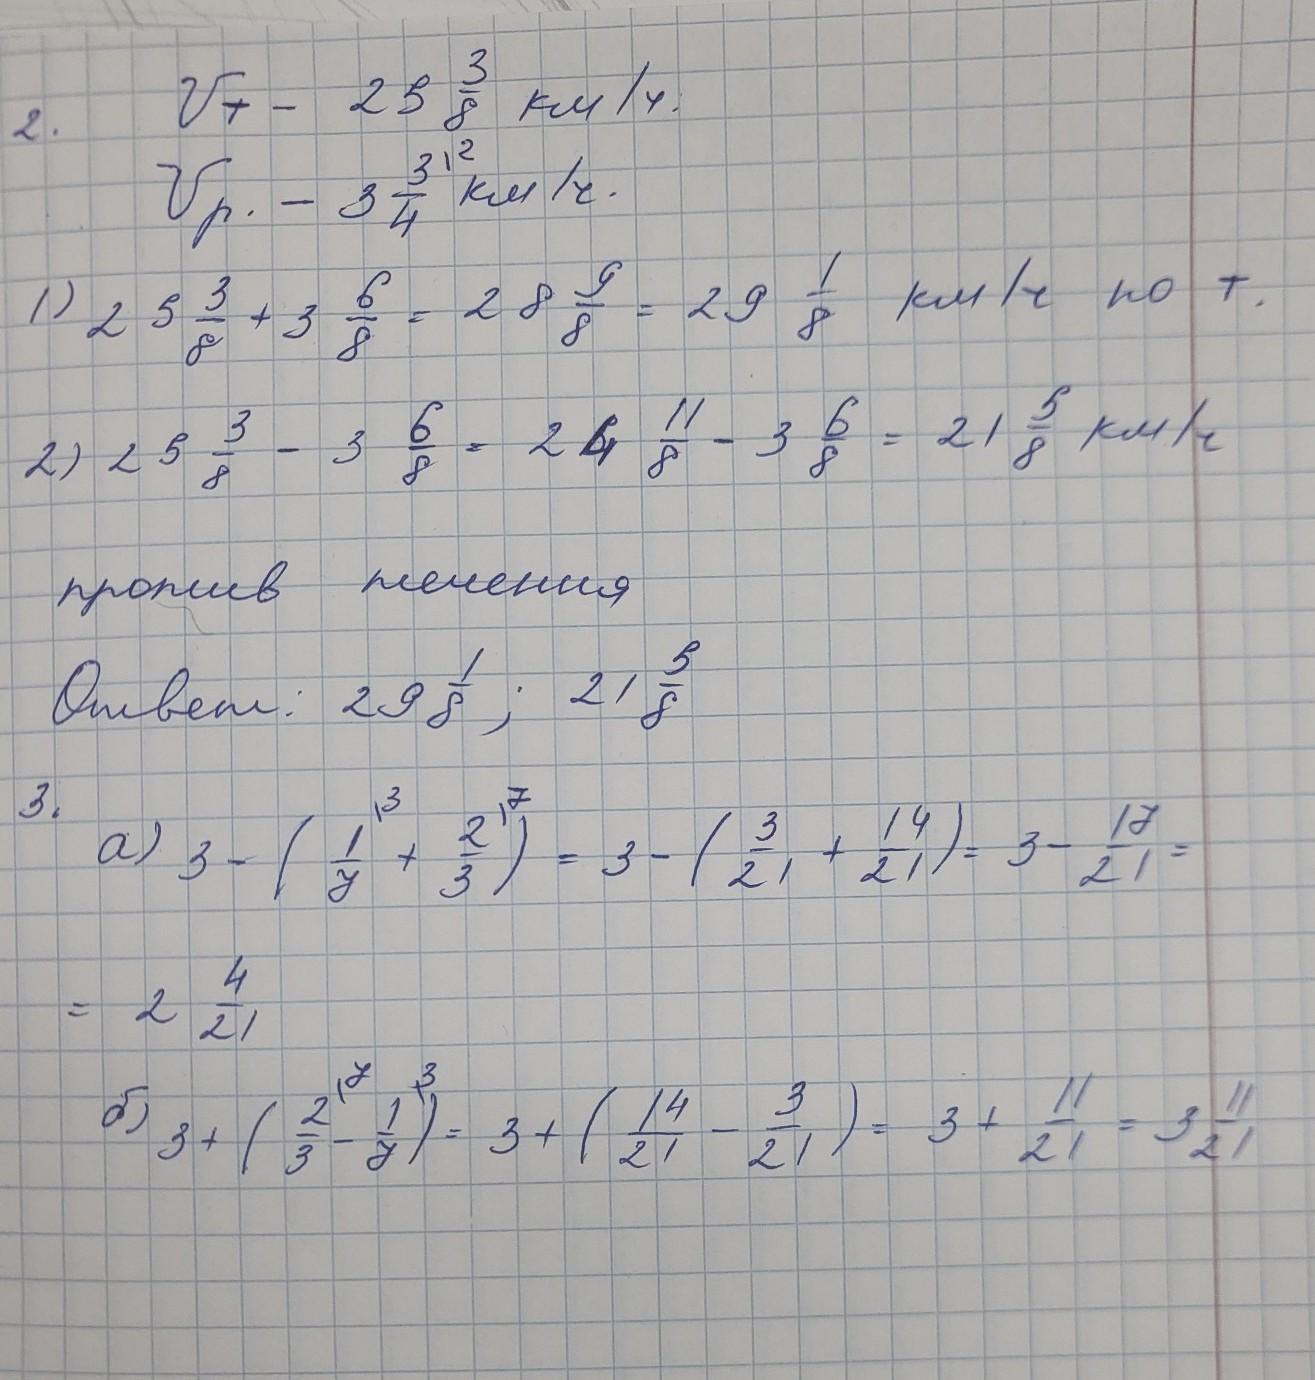 2. Vт - 25 3/8 км/ч.
Vр. - 3 3/4 ^2 км/ч.
1) 25 3/8 + 3 6/8 = 28 9/8 = 29 1/8 км/ч по т.
2) 25 3/8 - 3 6/8 = 24 11/8 - 3 6/8 = 21 5/8 км/ч
против течения
Ответ: 29 1/8 ; 21 5/8
3.
а) 3 - ( 1/7 ^3 + 2/3 ^7 ) = 3 - ( 3/21 + 14/21 ) = 3 - 17/21 =
= 2 4/21
б) 3 + ( 2/3 ^7 - 1/7 ^3 ) = 3 + ( 14/21 - 3/21 ) = 3 + 11/21 = 3 11/21